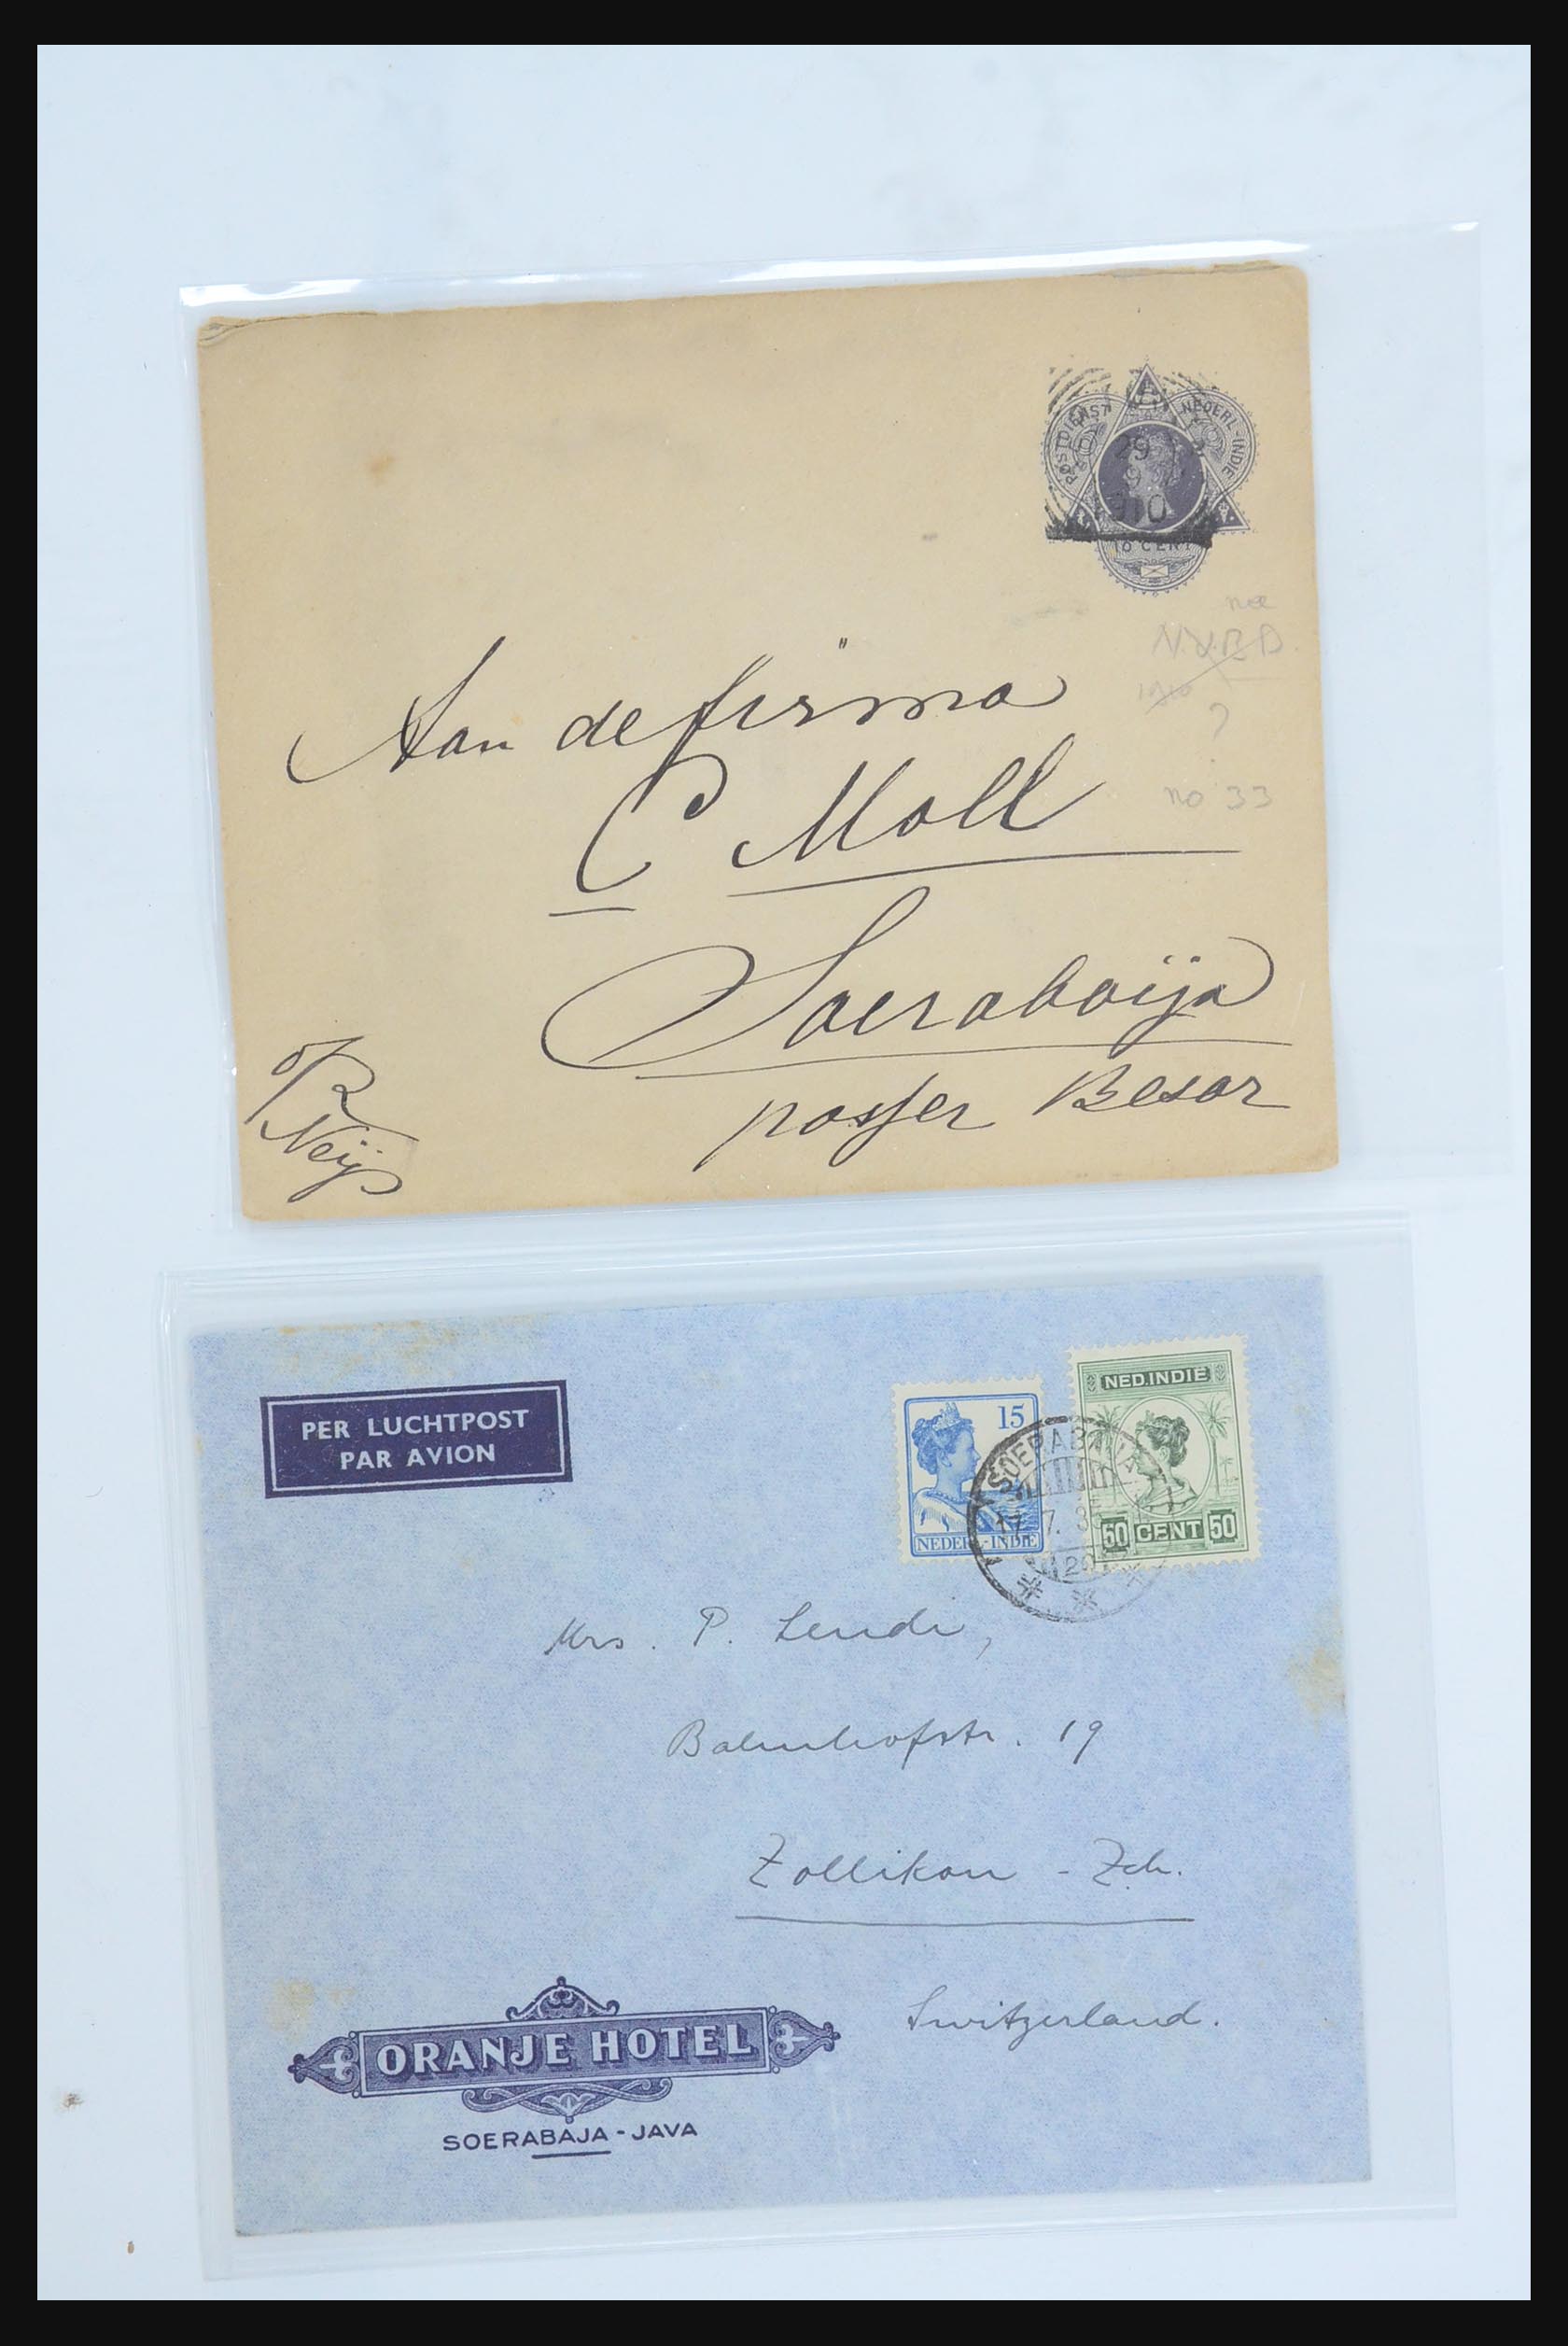 POSTDIENST NEDERL-INDIE
29
1910
10 CENT
N.V.R.D.
1910
?
no 33
Aan de firma
C Moll
Soerabaija
passer Besar
Neijs
PER LUCHTPOST
PAR AVION
15
NEDERL-INDIE
NED.INDIE
50 CENT 50
SOERABAJA
17.7.3
Mrs. P. Lendi,
Bahnhofstr. 19
Zollikon - Zch.
Switzerland.
ORANJE HOTEL
SOERABAJA - JAVA